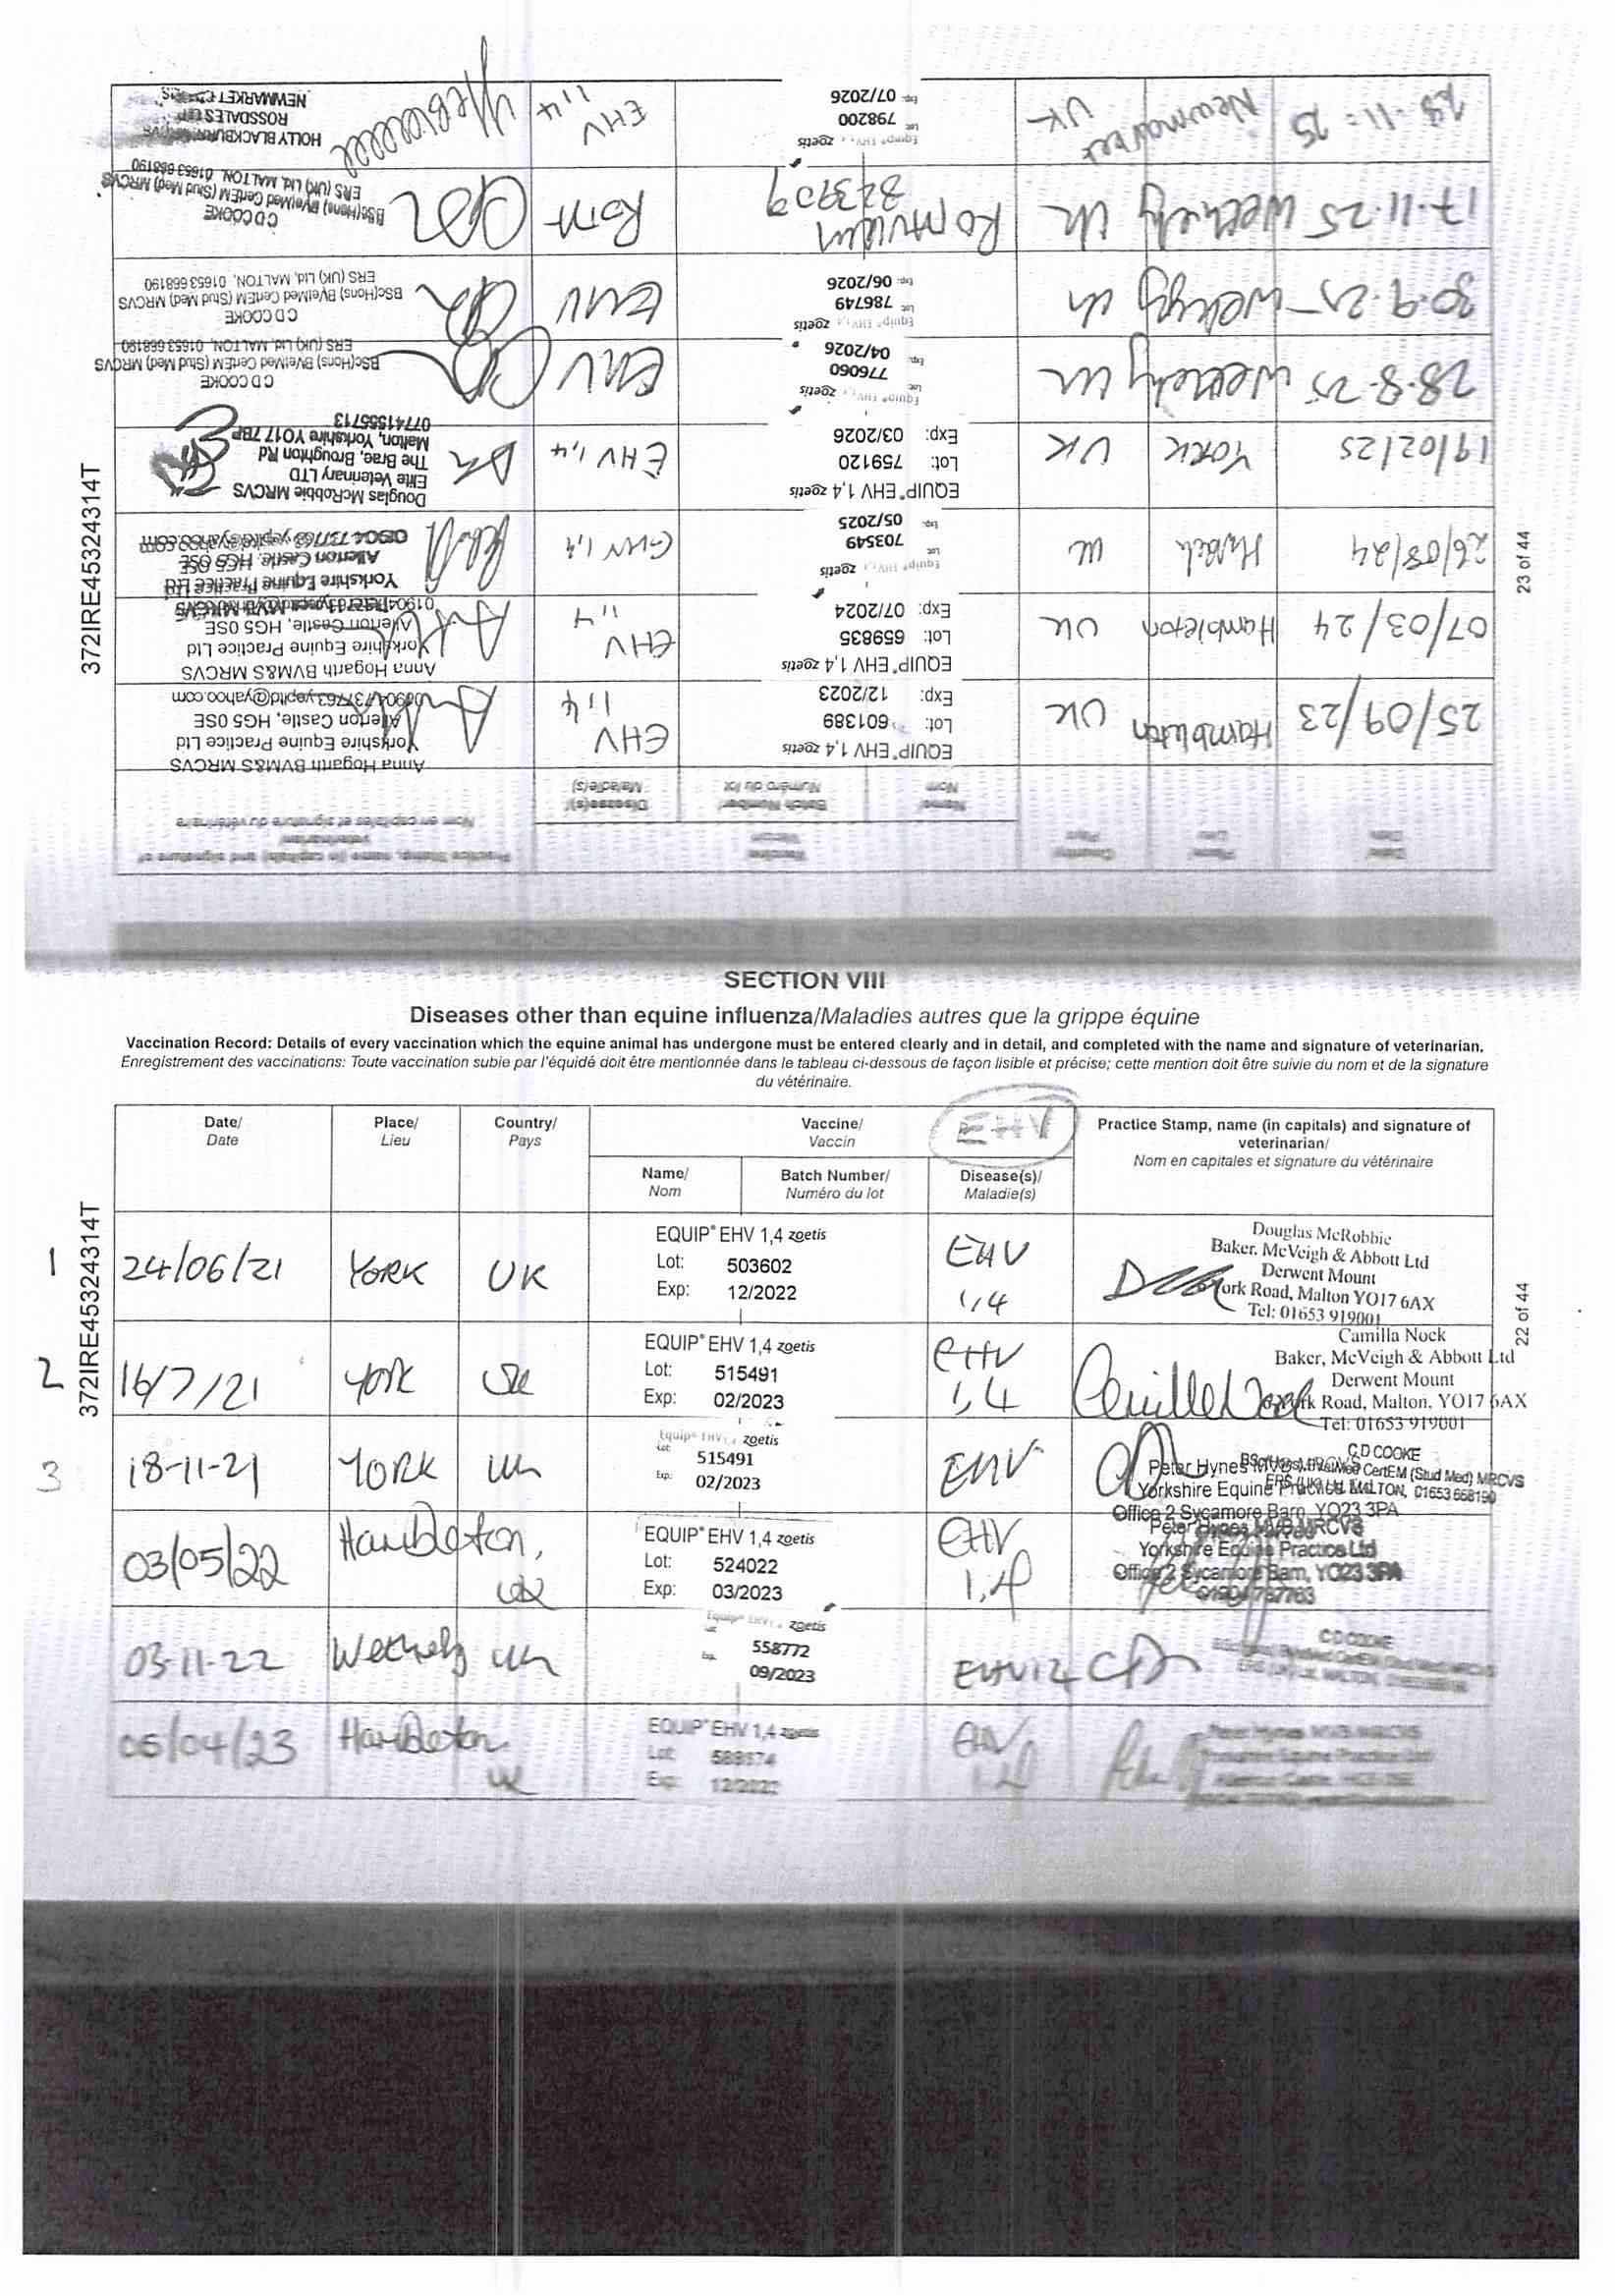 SECTION VIII
Diseases other than equine influenza/Maladies autres que la grippe équine
Vaccination Record: Details of every vaccination which the equine animal has undergone must be entered clearly and in detail, and completed with the name and signature of veterinarian.
Enregistrement des vaccinations: Toute vaccination subie par l'équidé doit être mentionnée dans le tableau ci-dessous de façon lisible et précise; cette mention doit être suivie du nom et de la signature
du vétérinaire.
EHV
Date/ Place/ Country/ Vaccine/ Practice Stamp, name (in capitals) and signature of
Date Lieu Pays Vaccin veterinarian/
Nom en capitales et signature du vétérinaire
Name/ Batch Number/ Disease(s)/
Nom Numéro du lot Maladie(s)
372IRE45324314T
22 of 44
1 24/06/21 YORK UK
EQUIP® EHV 1,4 zoetis
Lot: 503602
Exp: 12/2022
EHV
1,4
Douglas McRobbie
Baker, McVeigh & Abbott Ltd
Derwent Mount
York Road, Malton YO17 6AX
Tel: 01653 919001
2 16/7/21 York UK
EQUIP® EHV 1,4 zoetis
Lot: 515491
Exp: 02/2023
EHV
1,4
Camilla Nock
Baker, McVeigh & Abbott Ltd
Derwent Mount
York Road, Malton, YO17 6AX
Tel: 01653 919001
3 18-11-21 YORK UK
Equip® EHV 1,4 zoetis
Lot: 515491
Exp: 02/2023
EHV
C D COOKE
CertEM (Stud Med) MRCVS
MALTON, 01653 668190
Peter Hynes MVB MRCVS
Yorkshire Equine Practice Ltd
Office 2 Sycamore Barn, YO23 3PA
03/05/22 Hambleton, UK
EQUIP® EHV 1,4 zoetis
Lot: 524022
Exp: 03/2023
EHV
1,4
Peter Hynes MVB MRCVS
Yorkshire Equine Practice Ltd
Office 2 Sycamore Barn, YO23 3PA
01904 737763
03-11-22 Wetherby UK
Equip® EHV 1,4 zoetis
558772
Exp. 09/2023
C D COOKE
05/04/23 Hambleton UK
EQUIP® EHV 1,4 zoetis
Lot:
Exp:
EHV
1,4
Peter Hynes MVB MRCVS
Yorkshire Equine Practice Ltd
372IRE45324314T
23 of 44
Date Place Country Vaccine Practice Stamp, name (in capitals) and signature of
veterinarian/
Nom en capitales et signature du vétérinaire
Name/ Batch Number/ Disease(s)/
Nom Numéro du lot Maladie(s)
25/09/23 Hambleton UK
EQUIP® EHV 1,4 zoetis
Lot: 601389
Exp: 12/2023
EHV
1,4
Anna Hogarth BVM&S MRCVS
Yorkshire Equine Practice Ltd
Allerton Castle, HG5 0SE
01904 737763 yepltd@yahoo.com
07/03/24 Hambleton UK
EQUIP® EHV 1,4 zoetis
Lot: 659835
Exp: 07/2024
EHV
1,4
Anna Hogarth BVM&S MRCVS
Yorkshire Equine Practice Ltd
Allerton Castle, HG5 0SE
26/08/24 UK
Equip® EHV 1,4 zoetis
Lot: 703549
Exp. 05/2025
EHV 1,4
Yorkshire Equine Practice Ltd
Allerton Castle, HG5 0SE
01904 737763 yepltd@yahoo.com
19/02/25 YORK UK
EQUIP® EHV 1,4 zoetis
Lot: 759120
Exp: 03/2026
EHV 1,4
Douglas McRobbie MRCVS
Elite Veterinary LTD
The Brae, Broughton Rd
Malton, Yorkshire YO17 7BP
07741555713
28-8-25 Wetherby UK
Equip® EHV 1,4 zoetis
Lot 776060
Exp. 04/2026
EHV
C D COOKE
BSc(Hons) BVetMed CertEM (Stud Med) MRCVS
ERS (UK) Ltd, MALTON, 01653 668190
30-9-25 Wetherby UK
Equip® EHV 1,4 zoetis
Lot 786749
Exp. 06/2026
EHV
C D COOKE
BSc(Hons) BVetMed CertEM (Stud Med) MRCVS
ERS (UK) Ltd, MALTON, 01653 668190
17-11-25 Wetherby UK
323909
C D COOKE
BSc(Hons) BVetMed CertEM (Stud Med) MRCVS
ERS (UK) Ltd, MALTON, 01653 668190
Newmarket UK
Equip® EHV 1,4 zoetis
Lot 798200
Exp. 07/2026
EHV
1,4
HOLLY BLACKBURN
ROSSDALES LLP
NEWMARKET